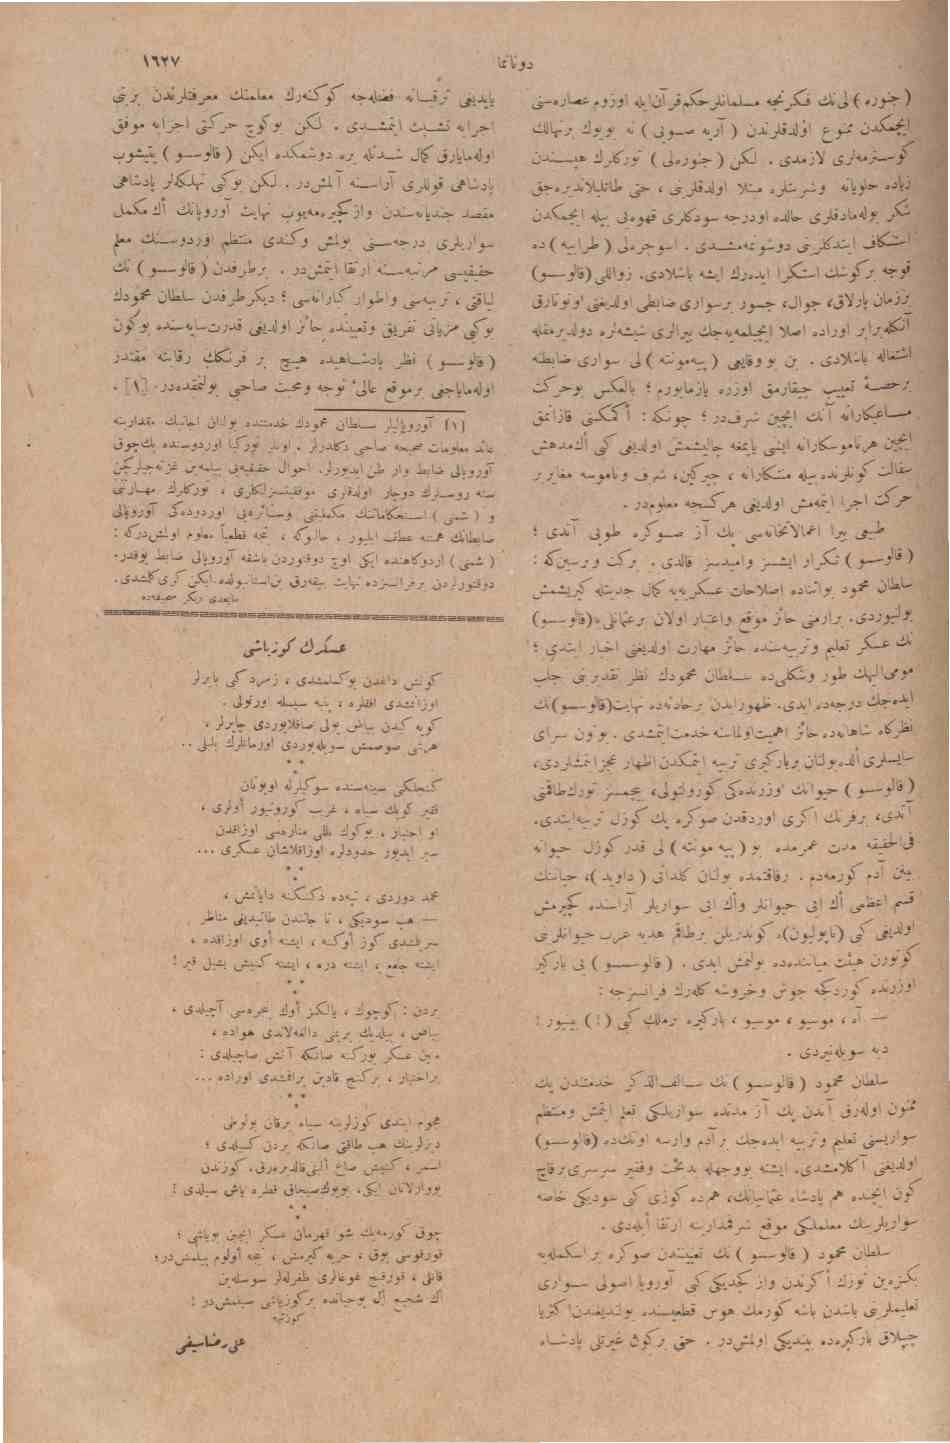 دونانما
١٦٢٧
( جنوره ) لى نك فكرنجه مسلمانلر حكم قرآن ايله اوزوم عصاره سنى
ايچمكدن ممنوع اولدقلرندن ( آرپه صوبى ) نه بوبوك برنهالك
كوسترمه لرى لازمدى . لكن ( جنوره لى ) توركلرك هپسندن
زياده حلويانه وشربتلره مبتلا اولدقلرينى ، حتى طاتليلانديره جق
شكر بوله مادقلرى حالده اودرجه سودكلرى قهوه لى بيله ايچمكدن
استنكاف ايتدكلرينى دوشونمه مشدى . اسوجره لى ( طرابيه ) ده
قوجه بر كوشك استكرا ايده رك ايشه باشلادى. زواللى (قالوسو)
برزمان پارلاق، جوال، جسور برسوارى ضابطى اولديغنى اونوتارق
آنكله برابر اوراده اصلا ايچيلميه جك بيرالرى شيشه لره دولديرمقله
اشتغاله باشلادى . بن بو وقايعى ( پيه مونته ) لى سوارى ضابطنه
برحصۀ تعييب چيقارمق اوزره يازمايورم ؛ بالعكس بو حركت
مساعيكارانه آنك ايچين شرفدر ؛ چونكه : أكمكنى قازانمق
ايچين هرناموسكارانه ايشى ياپمغه چاليشمش اولديغى كبى أك مدهش
سفالت كونلرنده بيله متكارانه ، چيركين، شرف وناموسه مغاير بر
حركت اجرا ايتمه مش اولديغى هركسجه معلومدر .
طبيعى بيرا اعمالاتخانه سى پك آز صوكره طوبى آتدى ؛
( قالوسو ) تكرار ايشسز واميدسز قالدى . بركت ويرسين كه :
سلطان محمود بواثناده اصلاحات عسكريه يه كمال جديتله كيريشمش
بولنيوردى. برارمنى حائز موقع واعتبار اولان برعثمانلى يه (قالوسو)
نك عسكر تعليم وتربيه سنده حائز مهارت اولديغنى اخبار ايتدى ؛
مومى اليهك طور وشكلى ده سلطان محمودك نظر تقديرينى جلب
ايده جك درجه ده ايدى. ظهور ايدن برحادثه ده نهايت (قالوسو) نك
نظركاه شاهانه ده حائز اهميت اولماسنه خدمت ايتمشدى . بوتون سراى
سايسلرى ألده بولنان برباركيرى تربيه ايتمكدن اظهار عجز ايتمشلردى،
( قالوسو ) حيوانك اوزرنده كى كورولتولى، بيچمسز تورك طاقمنى
آتدى، برفرنك اكرى اوردقدن صوكره پك كوزل تربيه ايتدى.
فى الحقيقه مدت عمرمده بو ( پيه مونته ) لى قدر كوزل حيوانه
بينن آدم كورمه دم . رفاقتمده بولنان كلدانى ( داويد )، حياتنك
قسم اعظمى أك ايى حيوانلر وأك ايى سواريلر آراسنده كچيرمش
اولديغى كبى (ناپوليون)ه كوندريلن برطاقم هديه عرب حيوانلرينى
كوتورن هيئت مياننده ده بولنمش ايدى . ( قالوسو ) يى باركير
اوزرنده كوردكجه جوش وخروشه كله رك فرانسزجه :
— آه ، موسيو ، موسيو ، باركيره برملك كبى (!) بينيور !
ديه سويله نيردى .
سلطان محمود ( قالوسو ) نك سالف الذكر خدمتندن پك
ممنون اوله رق آندن پك آز مدتده سواريلكى تعلم ايتمش ومنتظم
سواريسنى تعليم وتربيه ايده جك برآدم وارسه اونك ده (قالوسو)
اولديغنى آكلامشدى. ايشته بووجهله بدبخت وفقير سرسرى برقاچ
كون ايچنده هم پادشاه عثمانيانك، هم ده كوزى كبى سوديكى خاصه
سواريلرينك معلملكى موقع شرفمدارينه ارتقا أيله دى .
سلطان محمود ( قالوسو ) نك تعييندن صوكره براسكمله يه
بكزه ين تورك أكرندن واز كچديكى كبى آوروپا اصولى سوارى
تعليملرينى باشدن باشه كورمك هوس قطعيسنده بولنديغندن اكثريا
چيپلاق باركيره ده بينديكى اولمشدر . حتى بركون غيرتلى پادشاه
ياپديغى ترقياته فضله جه كوكنه رك معلمنك معرفتلرندن برينى
اجرايه تشبث ايتمشدى . لكن بوكوچ حركتى اجرايه موفق
اوله مايارق كمال شدتله يره دوشمكده ايكن ( قالوسو ) يتيشوب
پادشاهى قوللرى آراسنه آلمشدر . لكن بوكبى تهلكه لر پادشاهى
مقصد جديانه سندن واز كچيره مه يوب نهايت آوروپانك أك مكمل
سواريلرى درجه سنى بولمش وكندى منتظم اوردوسنك معلم
حقيقيسى مرتبه سنه ارتقا ايتمشدر . برطرفدن ( قالوسو ) نك
لياقتى ، تربيه سى واطوار كبارانه سى ؛ ديكر طرفدن سلطان محمودك
بوكبى مزياتى تفريق وتعيينده حائز اولديغى قدرت سايه سنده بوكون
( قالوسو ) نظر پادشاهيده هيچ بر فرنكك رقابته مقتدر
اوله ماياجغى برموقع عالئ توجه ومحبت صاحبى بولنمقده در . [١] .
[١] آوروپاليلر سلطان محمودك خدمتنده بولنان اجانبك مقدارينه
عائد معلومات صحيحه صاحبى دكلدرلر . اونلر توركيا اوردوسنده پك چوق
آوروپالى ضابط وار ظن ايديورلر. احوال حقيقيه يى بيلمه ين غزته جيلر كچن
سنه روسلرك دوچار اولدقلرى موفقيتسزلكلرى ، توركلرك مهارتنى
و ( شمنى ) استحكاماتنك مكمليتنى وسائره يى اوردوده كى آوروپالى
ضابطانك همتنه عطف ايليور ، حالبوكه ، بجه قطعياً معلوم اولمشدركه :
( شمنى ) اردوكاهنده ايكى اوچ دوقتوردن باشقه آوروپالى ضابط يوقدر.
دوقتورلردن برفرانسزده نهايت بيقه رق بن استانبولده ايكن كرى كلشدى.
مابعدى ديكر صحيفه ده
عسكرك كوز ياشى
كونش داغدن يوكسلمشدى ، زمرد كبى بايرلر
اوزانمشدى افقلره ، پنبه سيسله اورتولى .
كويه كيدن بياض يولى صاقلايوردى چايرلر ،
هر شى صوصمش سويله يوردى اورمانلرك بلبلى ..
* *
كنجلكنى سينه سنده سوكيلرله اويوتان
فقير كويك سياه ، غريب كورونيور أولرى ،
او اختيار ، بويوك ظللى مناره سى اوزاقدن
سير ايديور حدودلره اوزاقلاشان عسكرى ...
* *
محمد دوردى ، تپه ده دكنكنه دايانمش ،
— هب سوديكى ، تا جاندن طانيديغى مناظر
سريلمشدى كوز أوكنه ، ايشته أوى اوزاقده ،
ايشته جامع ، ايشته دره ، ايشته كنيش يشيل قير !
* *
بردن : كوچوك ، يالكز أوك پنجره سى آچيلدى ،
بياض ، بيلديك برمنديل دالغه لاندى هواده ،
عسكر يوركنه صانكه آتش صاچيلدى :
براختيار ، بركنج قادين براقمشدى اوراده ...
* *
هجوم ايتدى كوزلرينه سياه برقان بولوطى
ديزلرينك هب طاقتى صانكه بردن كسيلدى ؛
اسمر ، كنيش صاغ ألنى قالديره رق، كوزندن
يووارلانان ايكى بويوك سيجاق قطره ياش سيلدى !
*
*
چوق كورمه يك شو قهرمان عسكر ايچين بوياشى ؛
قورقوسى يوق ، حربه كيرمش ، نيجه أولوم بيلمشدر ؛
قانلى ، قورقنج غوغالرى ظفرلرله سوسله ين
أك شجيع أل بوجهانده بركوز ياشى سيلمشدر !
كورشيه
على رضا سيفى